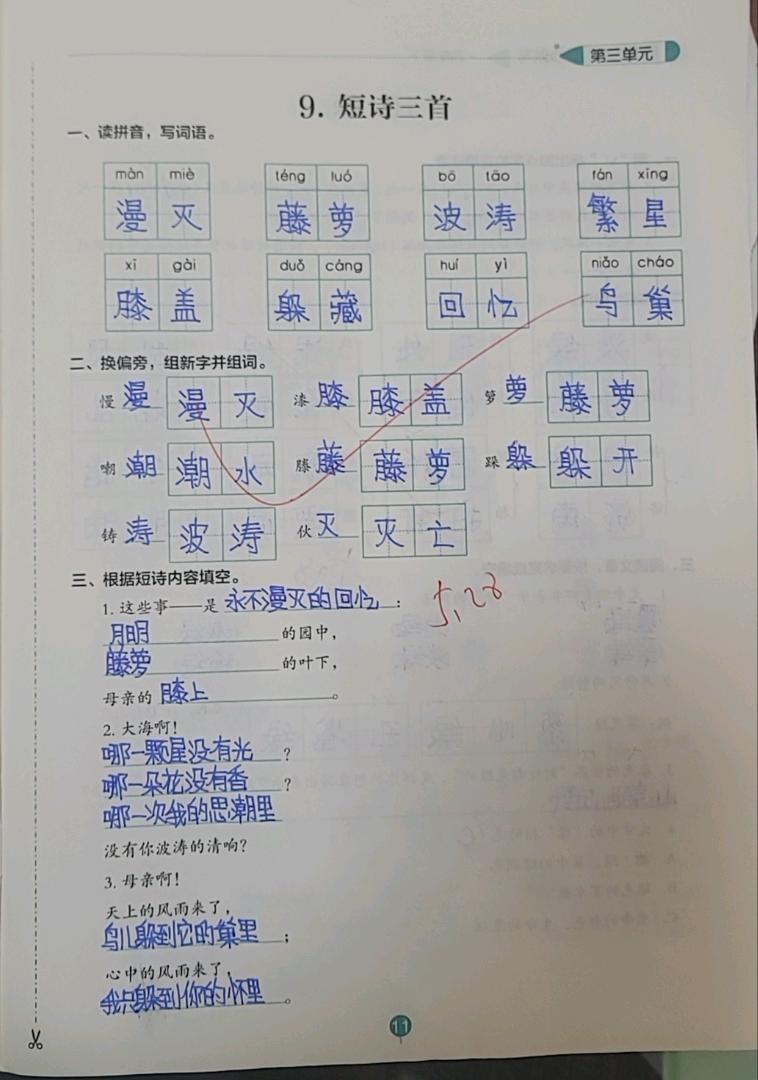 第三单元
9. 短诗三首
一、读拼音，写词语。
màn miè téng luó bō tāo fán xīng
漫灭 藤萝 波涛 繁星
xī gài duǒ cáng huí yì niǎo cháo
膝盖 躲藏 回忆 鸟巢
二、换偏旁，组新字并组词。
慢 漫 漫灭 漆 膝 膝盖 箩 萝 藤萝
嘲 潮 潮水 滕 藤 藤萝 跺 躲 躲开
铸 涛 波涛 伙 灭 灭亡
三、根据短诗内容填空。
1. 这些事——是永不漫灭的回忆：
月明的园中，
藤萝的叶下，
母亲的膝上。
5,28
2. 大海啊！
哪一颗星没有光？
哪一朵花没有香？
哪一次我的思潮里
没有你波涛的清响？
3. 母亲啊！
天上的风雨来了，
鸟儿躲到它的巢里；
心中的风雨来了，
我只躲到你的怀里。
11